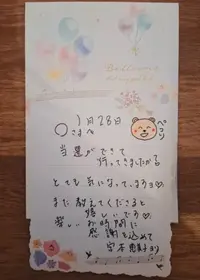 1月28日
○さまへ
ぺこり
当選ができて
待ってきましたから
とても気になっていますヨ♡
また教えてくださると
嬉しいです♡
お時間に
感謝を込めて
より